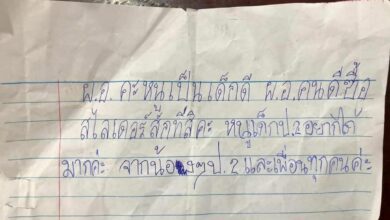 ผ.อ.คะหนูเป็นเด็กดี ผ.อ.คนดีซื้อ
สไลเดอร์สักที่สิคะ หนูเด็กป.2อยากได้
มากค่ะ จากน้องๆป.2และเพื่อนทุกคนค่ะ